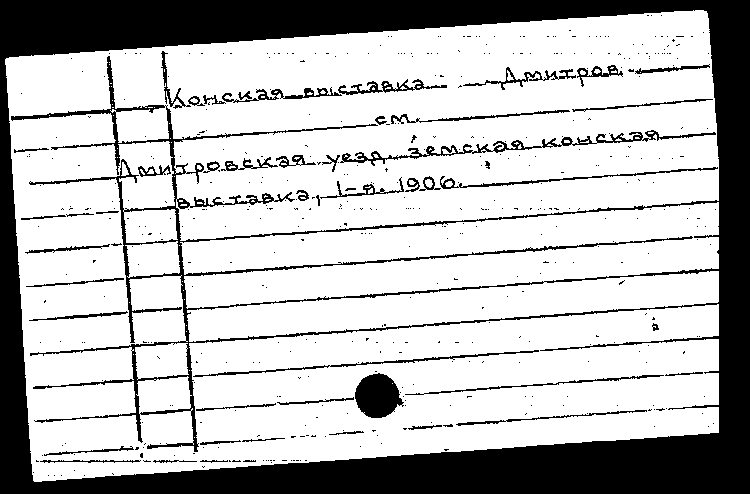 Конская выставка — Дмитров.
см.
Дмитровская уезд. земская конская
выставка, 1-я. 1906.